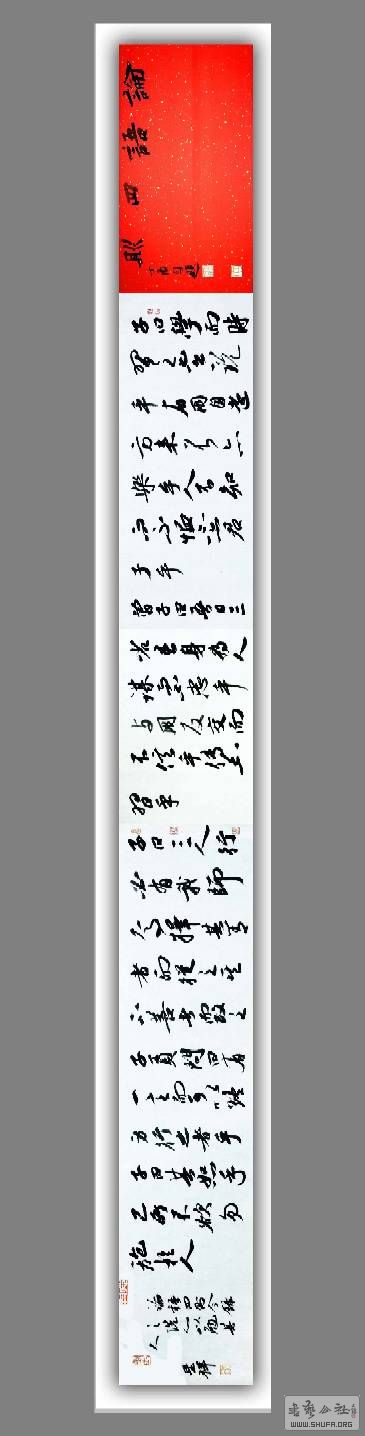 論語四則
子曰學而時
習之不亦説
乎有朋自遠
方來不亦
樂乎人不知
而不愠不亦君
子乎
曾子曰吾日三
省吾身為人
謀而不忠乎
与朋友交而
不信乎傳不
習乎
子曰三人行
必有我師
焉擇其善
者而從之其
不善者而改之
子貢問曰有
一言而可以終
身行之者乎
子曰其恕乎
己所不欲勿
施於人
書藝公社
WWW.SHUFA.ORG